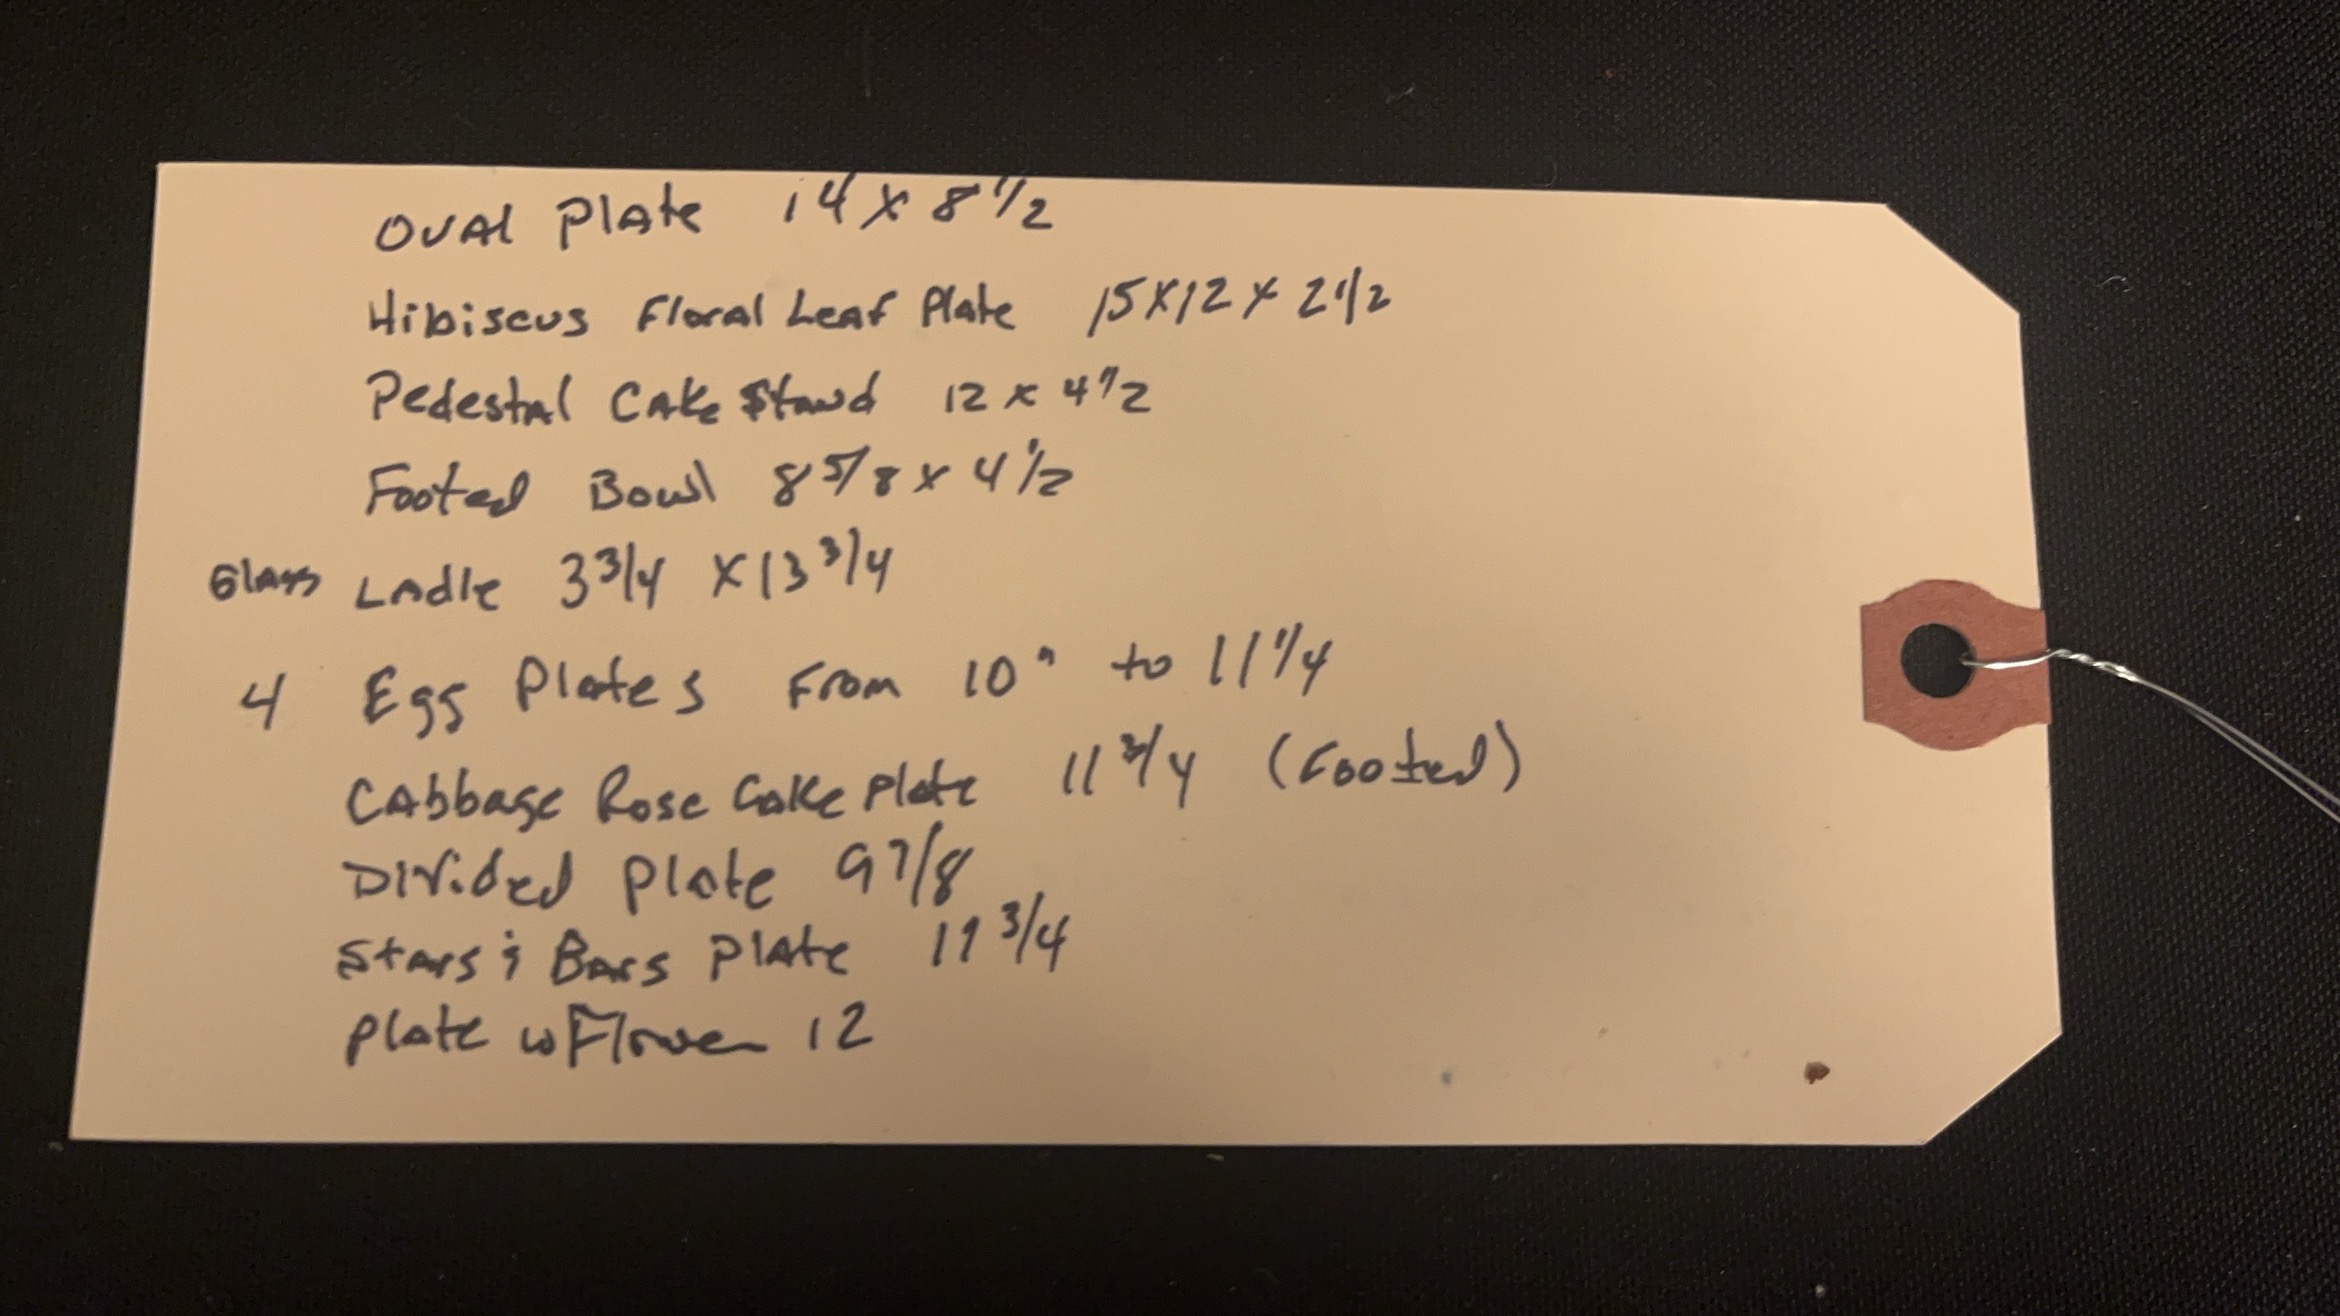 Oval Plate 14 x 8 1/2
Hibiscus Floral Leaf Plate 15 x 12 x 2 1/2
Pedestal Cake Stand 12 x 4 1/2
Footed Bowl 8 5/8 x 4 1/2
Glass Ladle 3 3/4 x 13 3/4
4 Egg Plates From 10" to 11 1/4
Cabbage Rose Cake Plate 11 3/4 (Footed)
Divided Plate 9 7/8
Stars & Bars Plate 11 3/4
Plate w Flower 12